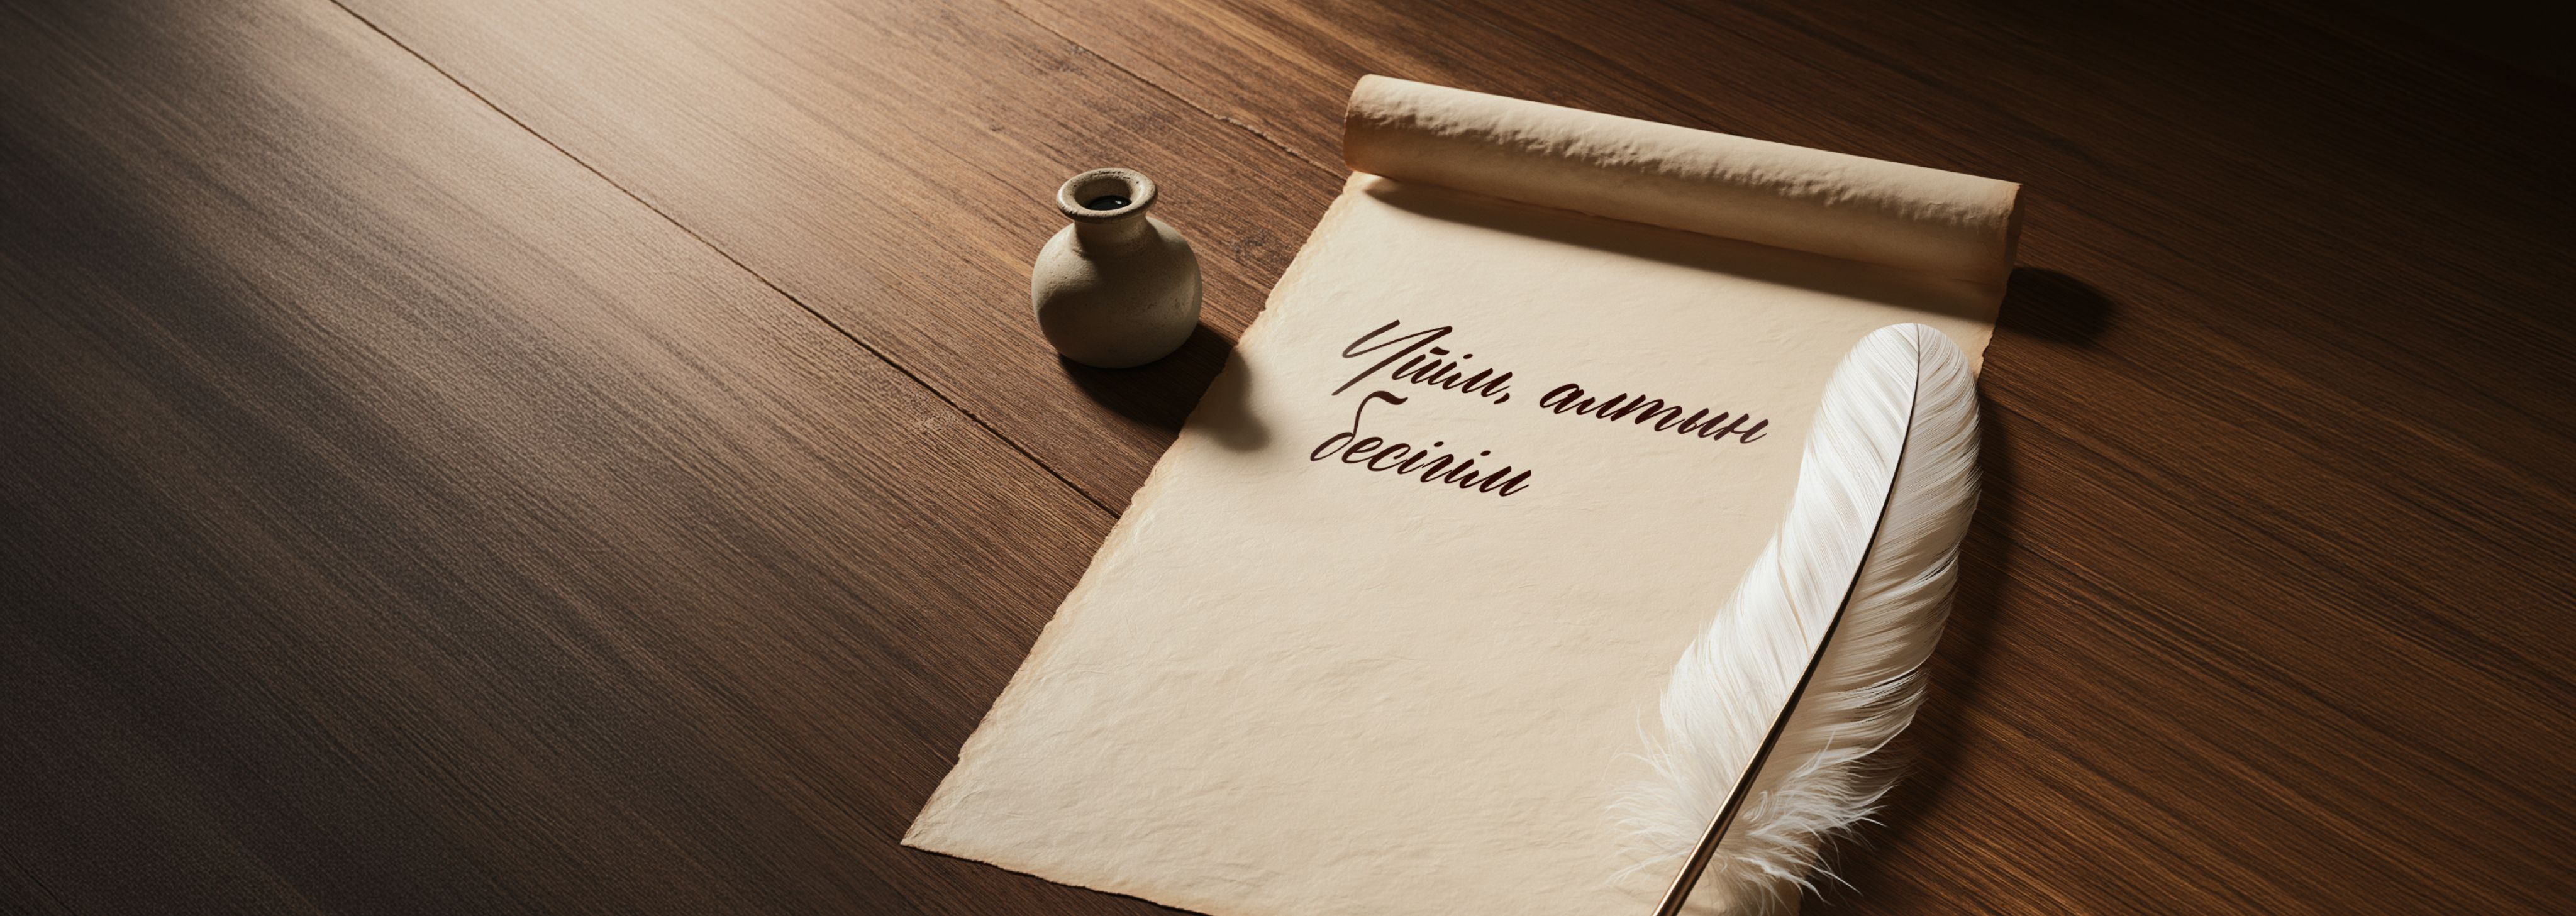 Үйім, алтын
бесігім